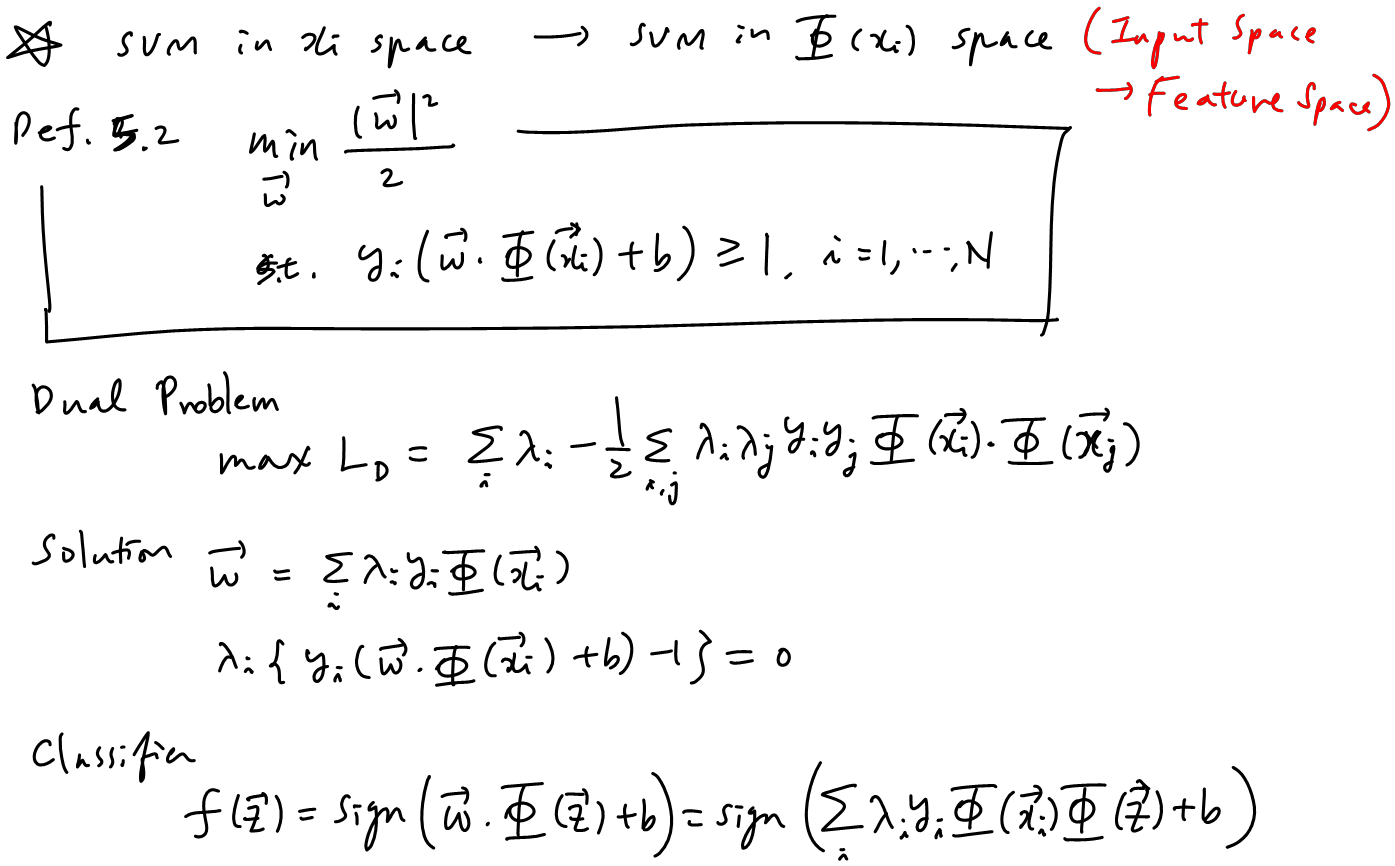 ☆ SVM in xi space → SVM in Φ(xi) space (Input Space
→ Feature Space)
Def. 5.2 min_{\vec{w}} |\vec{w}|²/2
s.t. yi(\vec{w}·Φ(\vec{xi})+b) ≥ 1, i=1,⋯,N
Dual Problem
max L_D = Σ_i λi - 1/2 Σ_{i,j} λiλj yiyj Φ(\vec{xi})·Φ(\vec{xj})
Solution \vec{w} = Σ_i λi yi Φ(\vec{xi})
λi{ yi(\vec{w}·Φ(\vec{xi})+b) -1} = 0
Classifier
f(\vec{z}) = sign(\vec{w}·Φ(\vec{z})+b) = sign(Σ_i λi yi Φ(\vec{xi})Φ(\vec{z})+b)